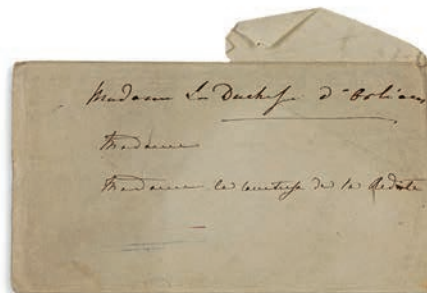 Madame La Duchesse d'Orléans
Madame
Madame la comtesse de la